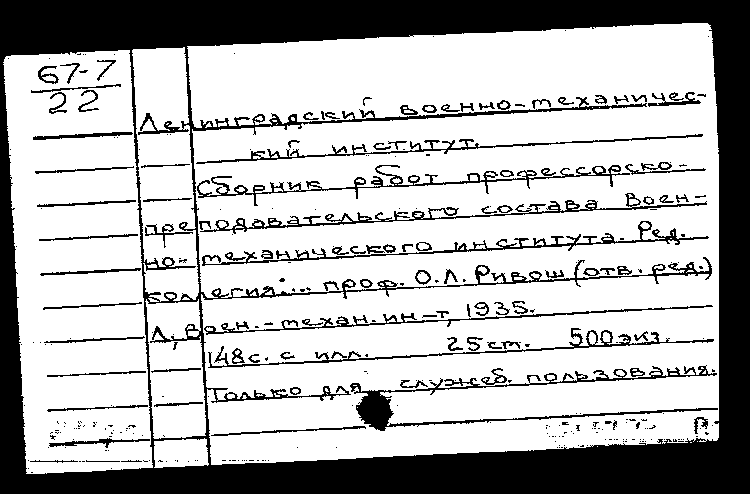 67-7
22
Ленинградский военно-механичес-
кий институт.
Сборник работ профессорско-
преподавательского состава Воен-
но-механического института. Ред.
коллегия:... проф. О.Л. Ривош (отв. ред.)
Л., Воен.-механ. ин-т, 1935.
148 с. с илл. 25 см. 500 экз.
Только для служеб. пользования.